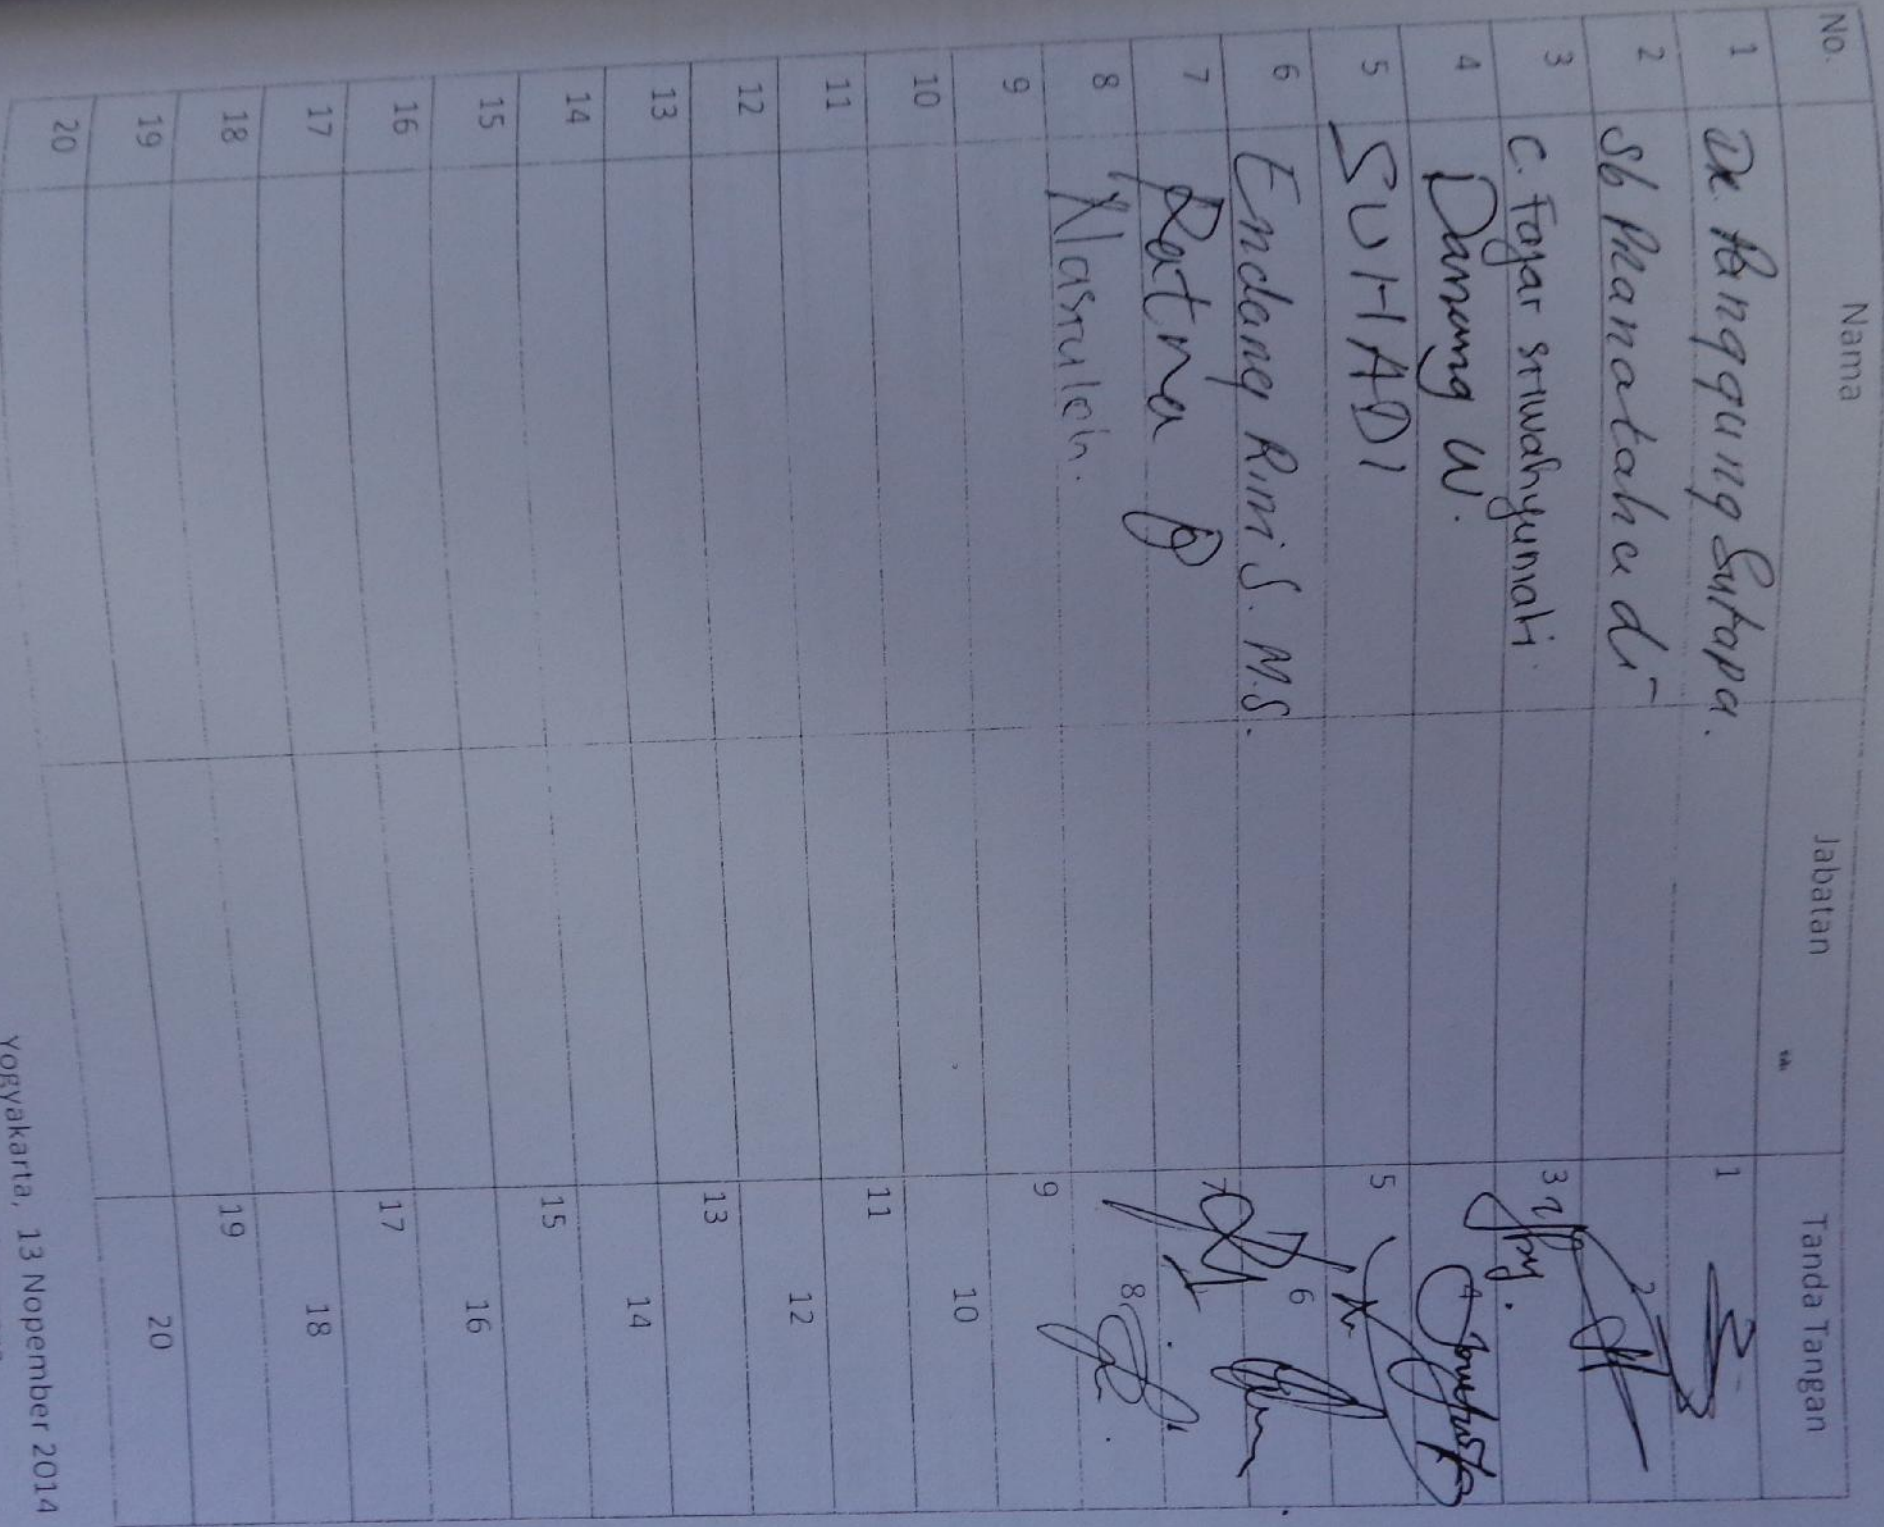 No. Nama Jabatan Tanda Tangan
1 Dr. Panggung Sutapa. 1
2 Sb Pranatahadi 2
3 C. Fajar Sriwahyuniati 3
4 Danang W. 4
5 SUHADI 5
6 Endang Rini S. M.S. 6
7 Ratna B 7
8 Nasrulah. 8
9 9
10 10
11 11
12 12
13 13
14 14
15 15
16 16
17 17
18 18
19 19
20 20
Yogyakarta, 13 Nopember 2014